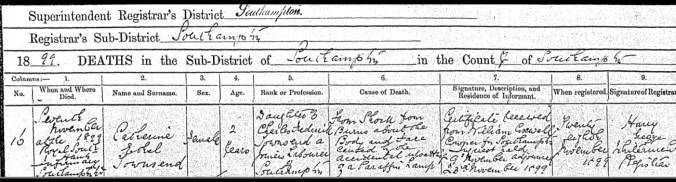 Superintendent Registrar's District Southampton
Registrar's Sub-District Southampton
1899. DEATHS in the Sub-District of Southampton in the County of Southampton
Columns:— 1. 2. 3. 4. 5. 6. 7. 8. 9.
No. When and Where Died. Name and Surname. Sex. Age. Rank or Profession. Cause of Death. Signature, Description, and Residence of Informant. When registered. Signature of Registrar
16
Seventh
November
1899
Royal South
Hants
Infirmary
Southampton
Catherine
Townsend
Female
2
Years
Daughter of
Charles Frederick
Townsend a
Labourer
Southampton
From Shock from
Burns about the
Body and Face
caused by the
accidental upsetting
of a Paraffin Lamp
Certificate received
from William Coxwell
Coroner for Southampton
Inquest held
9th November adjourned
23rd November 1899
Twenty
November
1899
Harry
Registrar